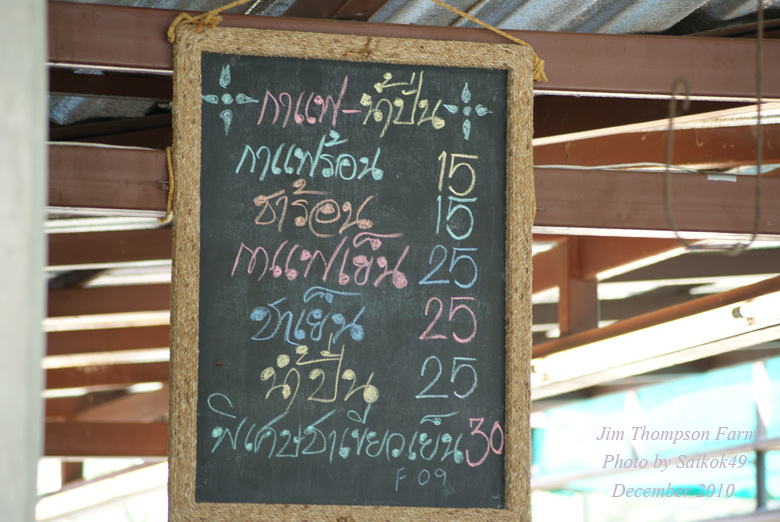 กาแฟ-น้ำปั่น
กาแฟร้อน 15
ชาร้อน 15
กาแฟเย็น 25
ชาเย็น 25
น้ำปั่น 25
พิเศษชาเขียวเย็น 30
F 09
Jim Thompson Farm
Photo by Saikok49
December 2010